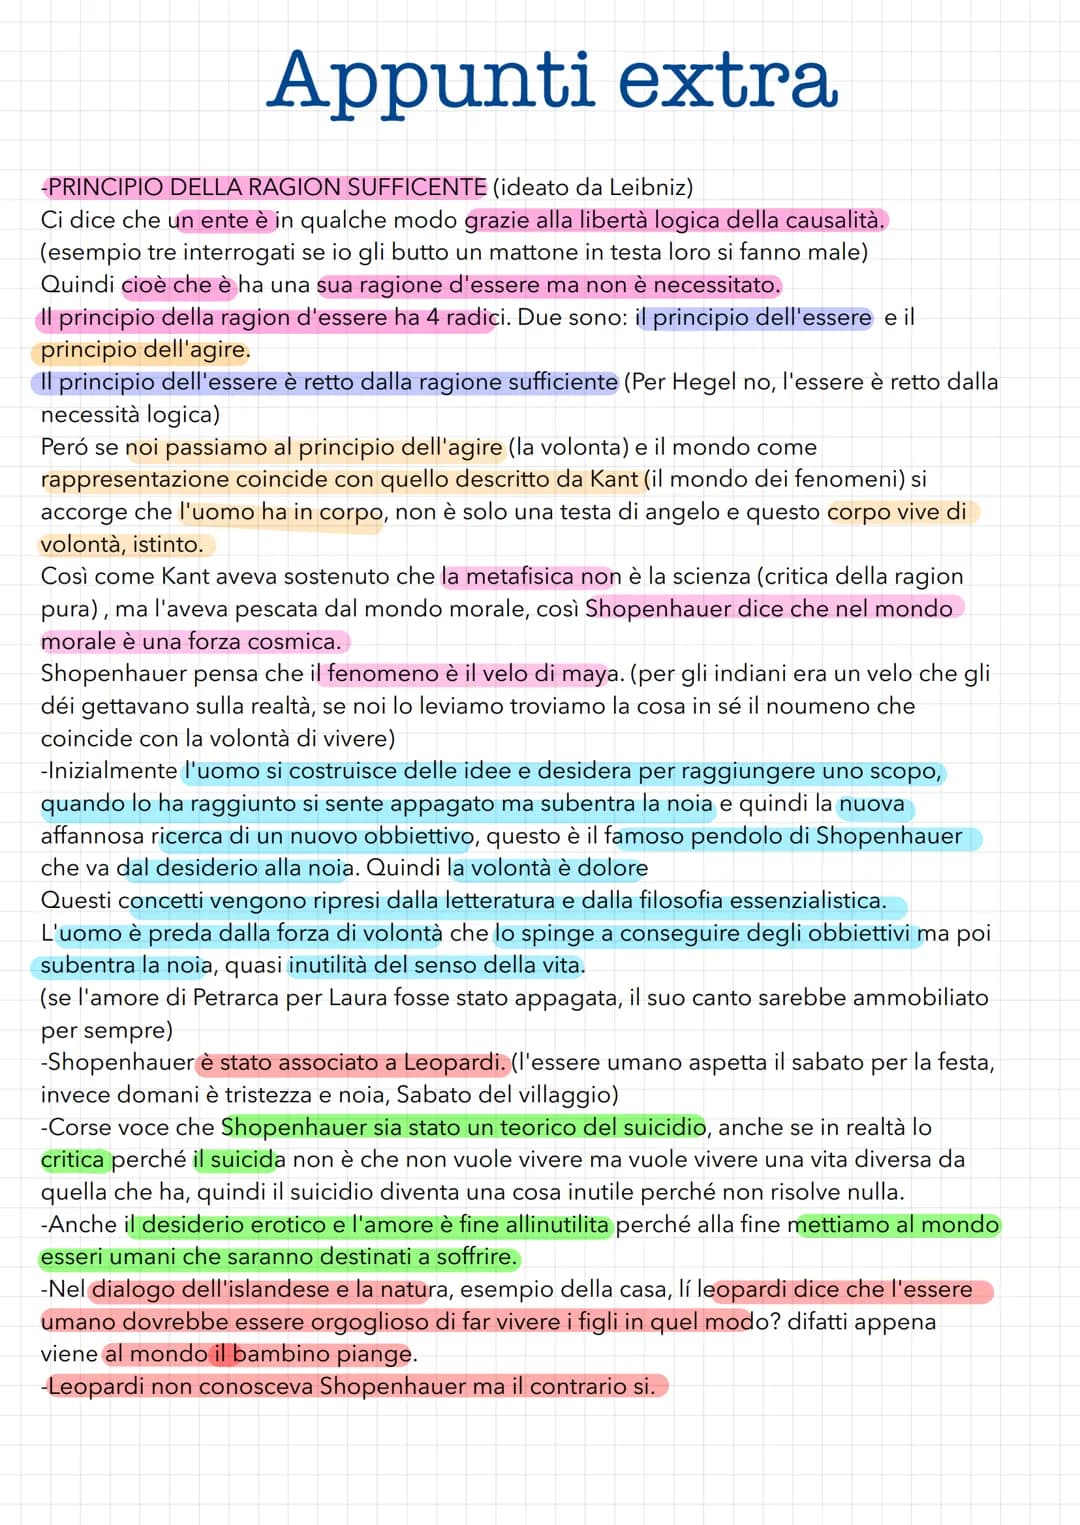 Appunti extra
-PRINCIPIO DELLA RAGION SUFFICENTE (ideato da Leibniz)
Ci dice che un ente è in qualche modo grazie alla libertà logica della causalità.
(esempio tre interrogati se io gli butto un mattone in testa loro si fanno male)
Quindi cioè che è ha una sua ragione d'essere ma non è necessitato.
Il principio della ragion d'essere ha 4 radici. Due sono: il principio dell'essere e il
principio dell'agire.
Il principio dell'essere è retto dalla ragione sufficiente (Per Hegel no, l'essere è retto dalla
necessità logica)
Peró se noi passiamo al principio dell'agire (la volonta) e il mondo come
rappresentazione coincide con quello descritto da Kant (il mondo dei fenomeni) si
accorge che l'uomo ha in corpo, non è solo una testa di angelo e questo corpo vive di
volontà, istinto.
Così come Kant aveva sostenuto che la metafisica non è la scienza (critica della ragion
pura), ma l'aveva pescata dal mondo morale, così Shopenhauer dice che nel mondo
morale è una forza cosmica.
Shopenhauer pensa che il fenomeno è il velo di maya. (per gli indiani era un velo che gli
déi gettavano sulla realtà, se noi lo leviamo troviamo la cosa in sé il noumeno che
coincide con la volontà di vivere)
-Inizialmente l'uomo si costruisce delle idee e desidera per raggiungere uno scopo,
quando lo ha raggiunto si sente appagato ma subentra la noia e quindi la nuova
affannosa ricerca di un nuovo obbiettivo, questo è il famoso pendolo di Shopenhauer
che va dal desiderio alla noia. Quindi la volontà è dolore
Questi concetti vengono ripresi dalla letteratura e dalla filosofia essenzialistica.
L'uomo è preda dalla forza di volontà che lo spinge a conseguire degli obbiettivi ma poi
subentra la noia, quasi inutilità del senso della vita.
(se l'amore di Petrarca per Laura fosse stato appagata, il suo canto sarebbe ammobiliato
per sempre)
-Shopenhauer è stato associato a Leopardi. (l'essere umano aspetta il sabato per la festa,
invece domani è tristezza e noia, Sabato del villaggio)
-Corse voce che Shopenhauer sia stato un teorico del suicidio, anche se in realtà lo
critica perché il suicida non è che non vuole vivere ma vuole vivere una vita diversa da
quella che ha, quindi il suicidio diventa una cosa inutile perché non risolve nulla.
-Anche il desiderio erotico e l'amore è fine allinutilita perché alla fine mettiamo al mondo
esseri umani che saranno destinati a soffrire.
-Nel dialogo dell'islandese e la natura, esempio della casa, lí leopardi dice che l'essere
umano dovrebbe essere orgoglioso di far vivere i figli in quel modo? difatti appena
viene al mondo il bambino piange.
-Leopardi non conosceva Shopenhauer ma il contrario si.